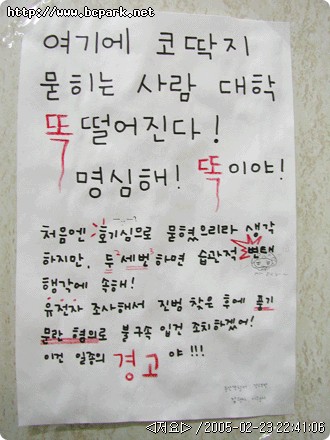 http://www.bcpark.net
여기에 코딱지
묻히는 사람 대학
똑 떨어진다!
명심해! 똑이야!
처음엔 호기심으로 묻혔으리라 생각
하지만, 두세번 하면 습관적 변태
행각에 속해!
유전자 조사해서 진범 찾은 후에 풍기
문란 혐의로 불구속 입건 조치하겠어!
이건 일종의 경고야!!!
◁저요▷ /2005-02-23 22:41:06